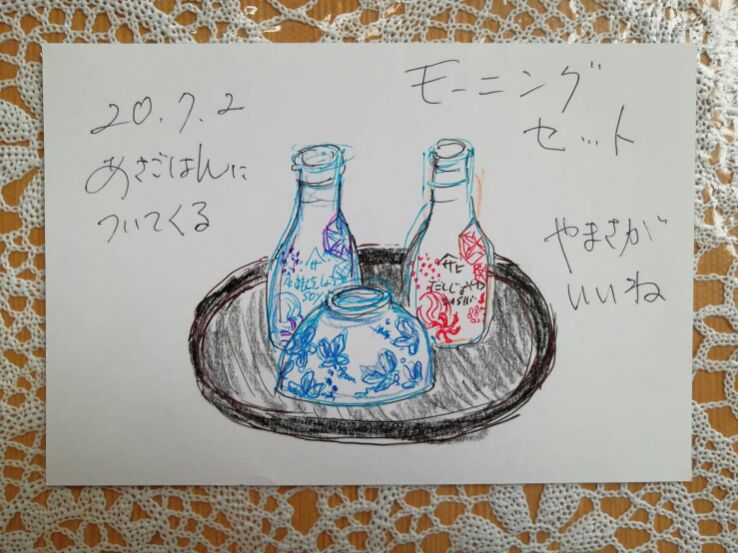 モーニング
セット
20.7.2
あさごはんに
ついてくる
やまさが
いいね